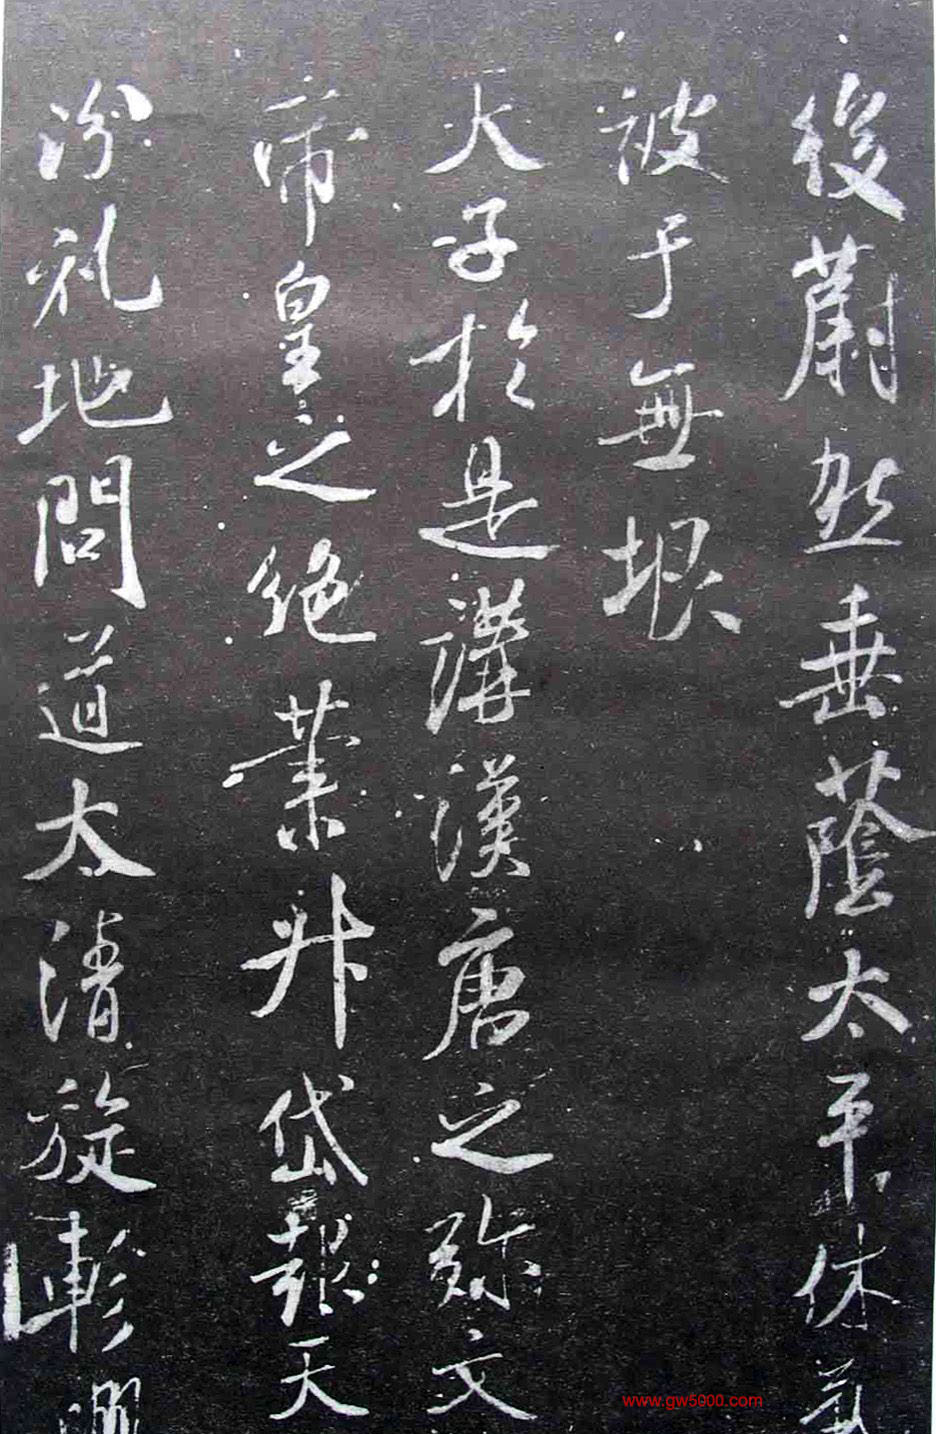 後蔚然垂蔭太平休氣
被于無垠
天子於是講漢唐之弥文
帝皇之絶業升岱報天
汾礼地問道太清旋軫
www.gw5000.com